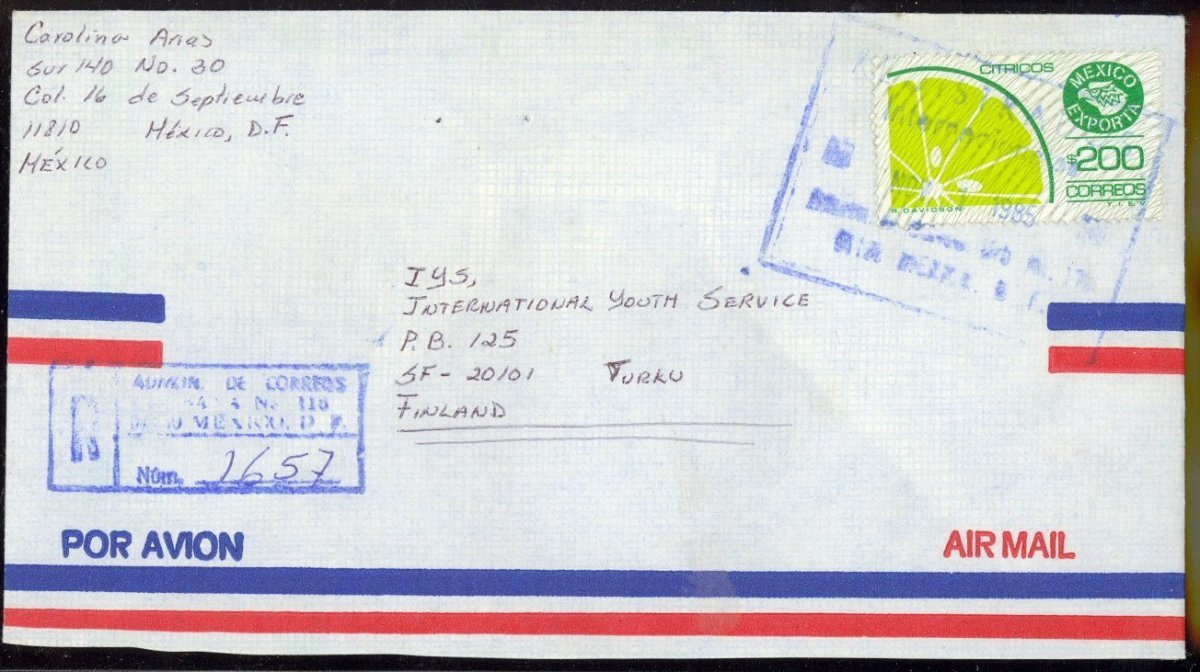 Carolina Arias
Sur 140 No. 30
Col. 16 de Septiembre
11810 México, D.F.
MÉXICO
CITRICOS
MEXICO EXPORTA
$200
CORREOS
T.I.E.V.
R. DAVIDSON
1985
IYS,
INTERNATIONAL YOUTH SERVICE
P.B. 125
SF-20101 TURKU
FINLAND
R
ADMON. DE CORREOS
No. 116
MEXICO, D. F.
Núm. 1657
POR AVION
AIR MAIL